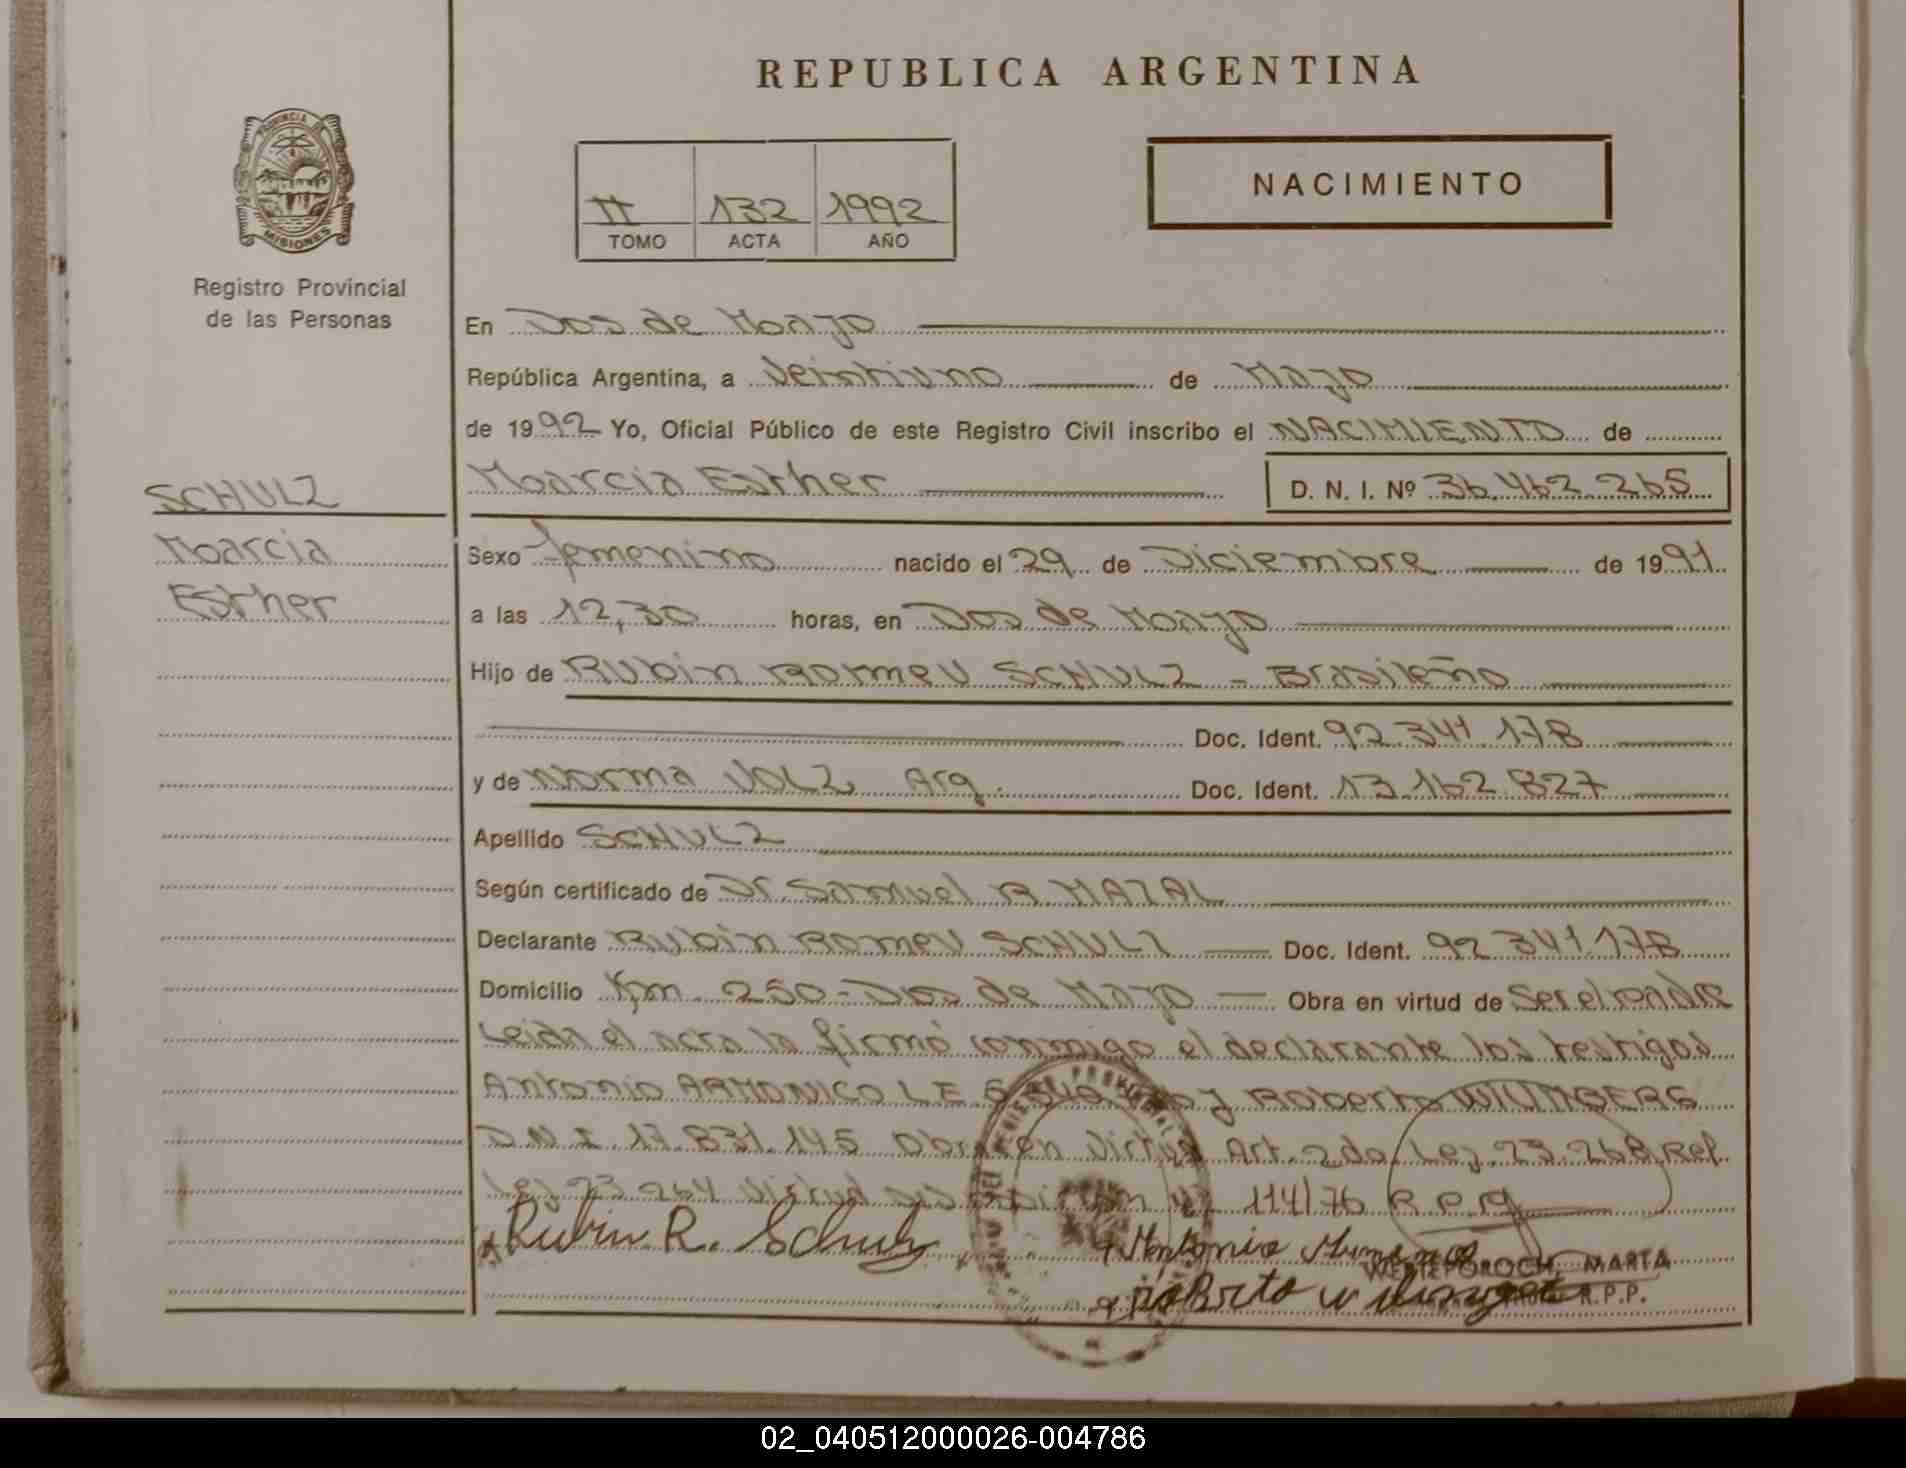 REPUBLICA ARGENTINA
PROVINCIA DE
MISIONES
Registro Provincial
de las Personas
II 132 1992
TOMO ACTA AÑO
NACIMIENTO
En Dos de Mayo
República Argentina, a Veintiuno de Mayo
de 1992 Yo, Oficial Público de este Registro Civil inscribo el NACIMIENTO de
Marcia Esther D. N. I. Nº 36.462.265
SCHULZ
Marcia
Esther
Sexo femenino nacido el 29 de Diciembre de 1991
a las 12,30 horas, en Dos de Mayo
Hijo de Rubin Romeu SCHULZ - Brasileño
Doc. Ident. 92.341.178
y de Norma VOLZ Arg. Doc. Ident. 13.162.827
Apellido SCHULZ
Según certificado de Dr. Samuel R. MAZAL
Declarante Rubin Romeu SCHULZ Doc. Ident. 92 341 178
Domicilio Km. 250 - Dos de Mayo Obra en virtud de Ser el padre
Leida el acta la firmó conmigo el declarante los testigos
Antonio ARMONICO L E y Roberto
D.N.I. 17.831.145 Obra en Virtud Art. 2do. Ley 23.268 Ref.
Ley 23.264 Virtud 114/76 R.P.P.
Rubin R. Schulz
Antonio
WESTEPOROCH, MARTA
Roberto
R.P.P.
02_040512000026-004786